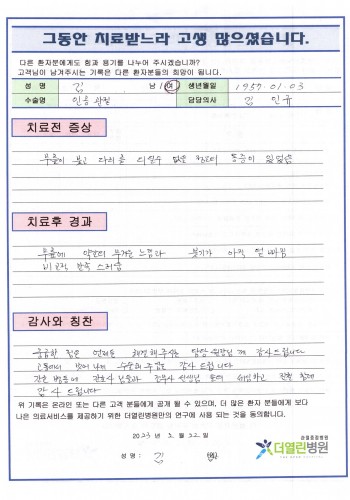 그동안 치료받느라 고생 많으셨습니다.
다른 환자분에게도 힘과 용기를 나누어 주시겠습니까?
고객님이 남겨주시는 기록은 다른 환자분들의 희망이 됩니다.
성 명 김 남 / 여 생년월일 1957.01.03
수술명 인공관절 담당의사 김 민규
치료전 증상
무릎이 붓고 다리를 통증이 있었음
치료후 경과
무릎에 약간의 무거운 느낌과 붓기가 아직 덜 빠짐
비교적 만족스러움
감사와 칭찬
궁금한 점은 언제든 담당 원장님께 감사드립니다
수술해 주셔서 감사드립니다
간호사님들과 친절하게
감사드립니다
위 기록은 온라인 또는 다른 고객 분들에게 공개 될 수 있으며, 더 많은 환자 분들에게 보다
나은 의료서비스를 제공하기 위한 더열린병원만의 연구에 사용 되는 것을 동의합니다.
2023 년 3 월 22 일
성 명 : 김
관절종합병원
더열린병원